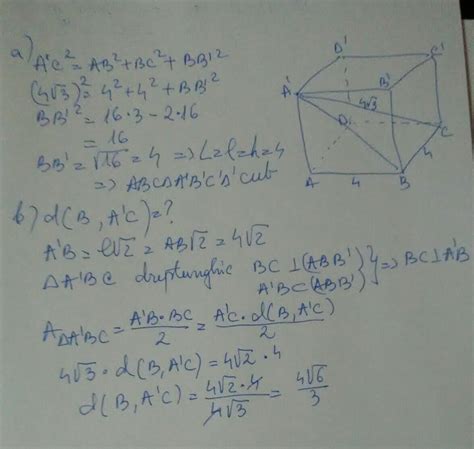 a) A'C² = AB² + BC² + BB'²
(4√3)² = 4² + 4² + BB'²
BB'² = 16·3 - 2·16
= 16
BB' = √16 = 4 => L=l=h=4
=> ABCDA'B'C'D' cub
b) d(B, A'C) = ?
A'B = l√2 = AB√2 = 4√2
ΔA'BC dreptunghic BC ⊥ (ABB')
A'B ⊂ (ABB') } => BC ⊥ A'B
A ΔA'BC = A'B · BC / 2 = A'C · d(B, A'C) / 2
4√3 · d(B, A'C) = 4√2 · 4
d(B, A'C) = 4√2 · 4 / 4√3 = 4√6 / 3
D'
C'
A'
B'
4√3
D
C
4
A
4
B